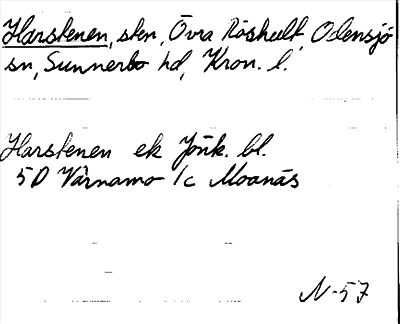 Harstenen, sten, Övra Röshult, Odensjö
sn, Sunnerbo hd, Kron. l.
Harstenen ek Jönk. bl.
5D Värnamo 1c Moanäs
N-57